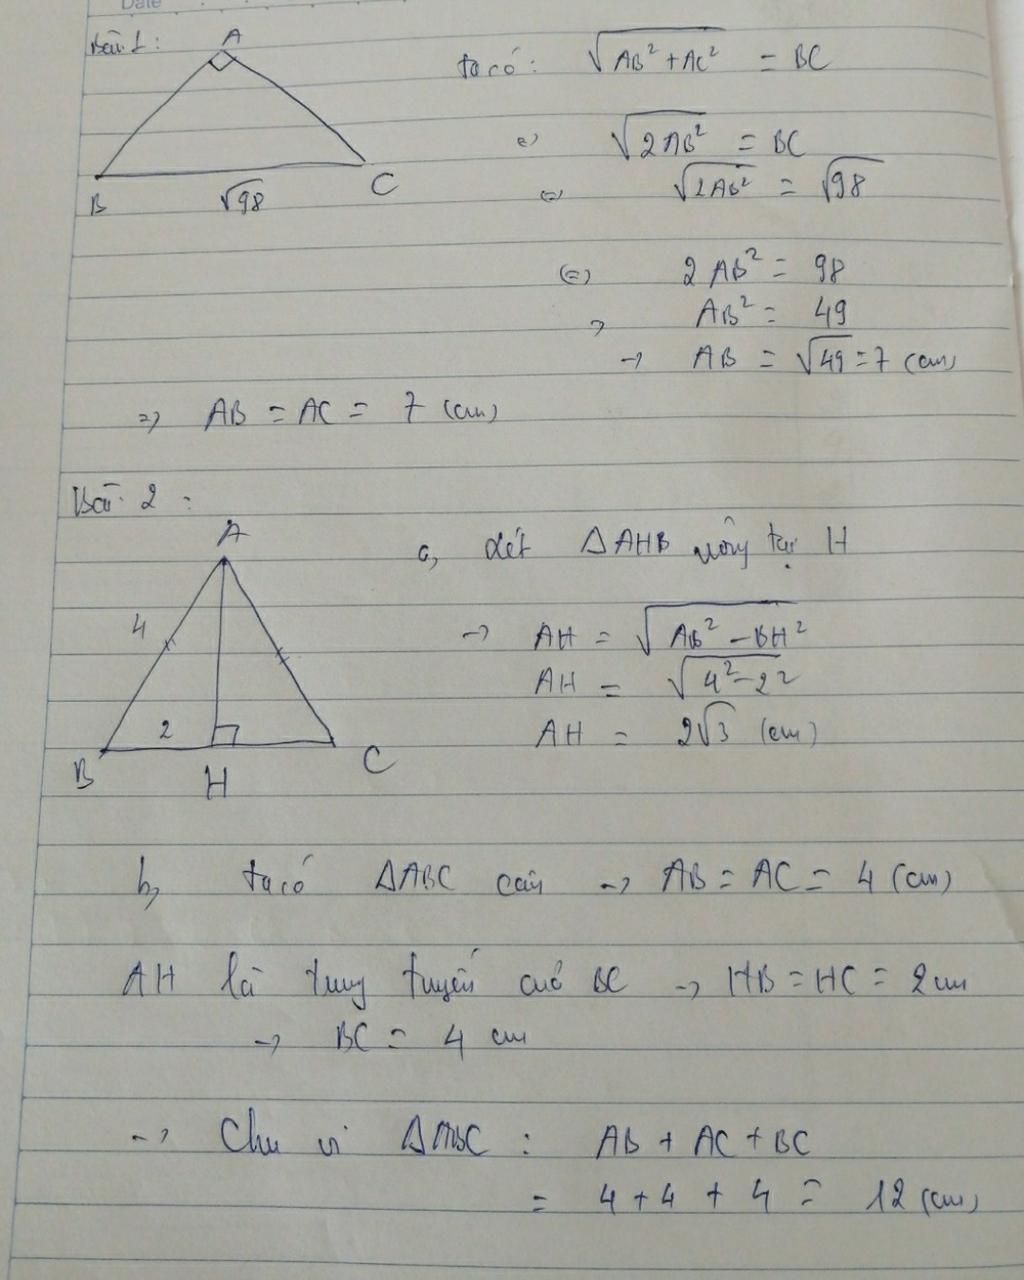 Date
Bài 1:
A
B
C
√98
ta có: √AB² + AC² = BC
(=) √2AB² = BC
(=) √2AB² = √98
(=) 2AB² = 98
=> AB² = 49
→ AB = √49 = 7 (cm)
=> AB = AC = 7 (cm)
Bài 2:
A
4
2
B
H
C
a, Xét △AHB vuông tại H
→ AH = √AB² - BH²
AH = √4² - 2²
AH = 2√3 (cm)
b, ta có △ABC cân → AB = AC = 4 (cm)
AH là trung tuyến của BC → HB = HC = 2 cm
→ BC = 4 cm
→ Chu vi △ABC : AB + AC + BC
= 4 + 4 + 4 = 12 (cm)